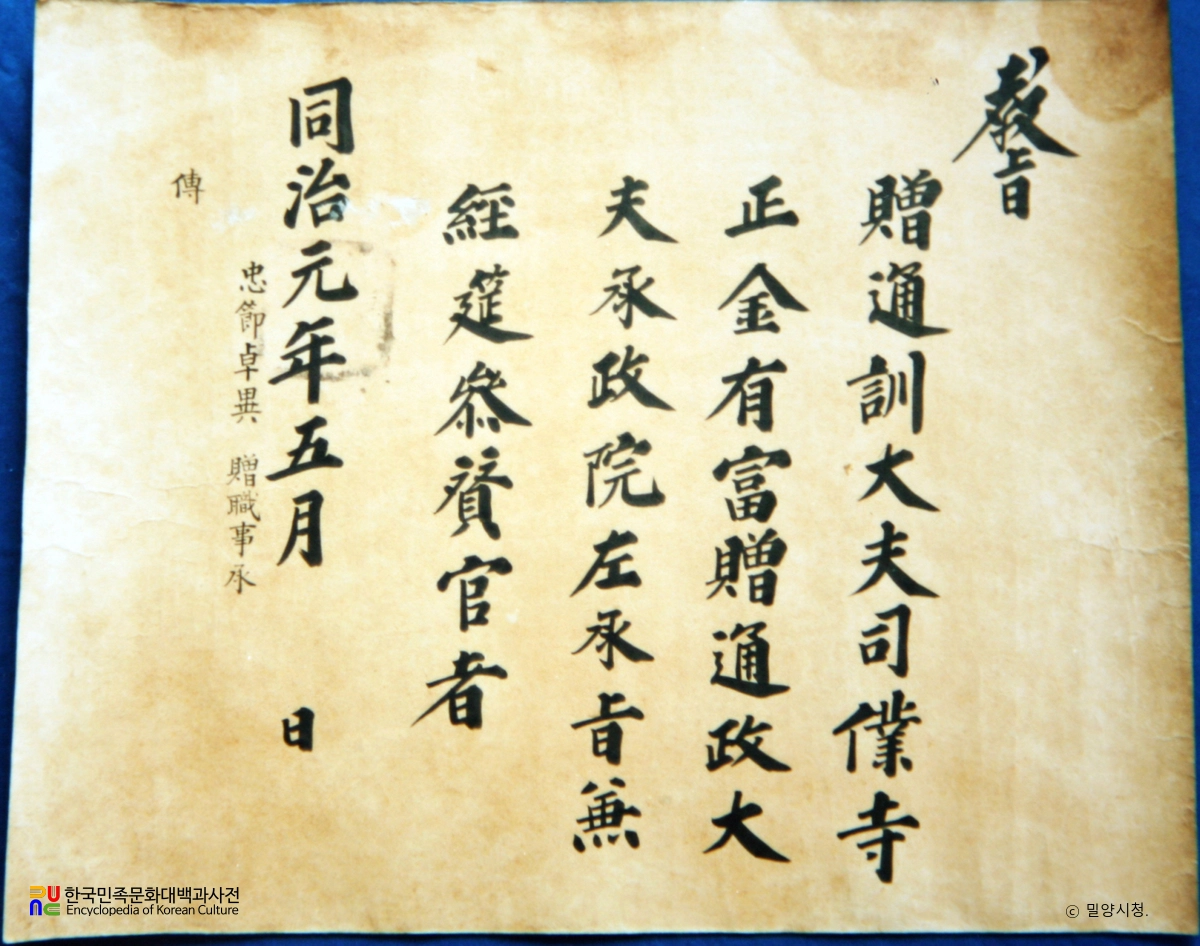 敎旨
贈通訓大夫司僕寺
正金有富贈通政大
夫承政院左承旨兼
經筵參贊官者
同治元年五月 日
忠節卓異 贈職事承
傳
한국민족문화대백과사전
Encyclopedia of Korean Culture
ⓒ 밀양시청.